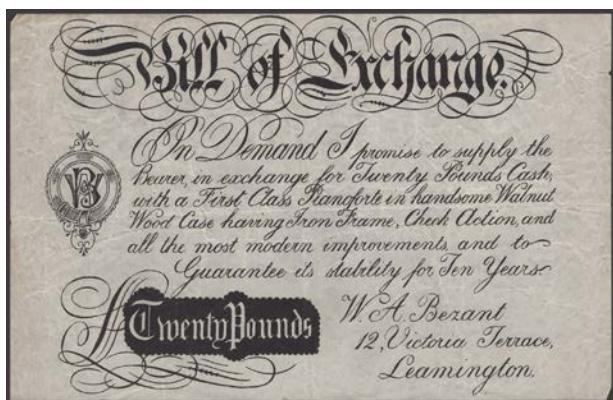 Bill of Exchange.
On Demand I promise to supply the
Bearer, in exchange for Twenty Pounds Cash,
with a First Class Pianoforte in handsome Walnut
Wood Case having Iron Frame, Check Action, and
all the most modern improvements, and to
Guarantee its stability for Ten Years
£ Twenty Pounds
W. A. Bezant
12, Victoria Terrace,
Leamington.